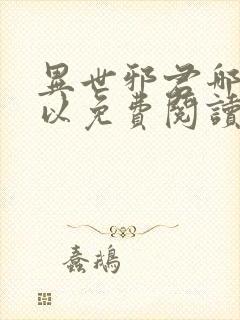 異世邪君哪
以免費閱讀
蠢鵝